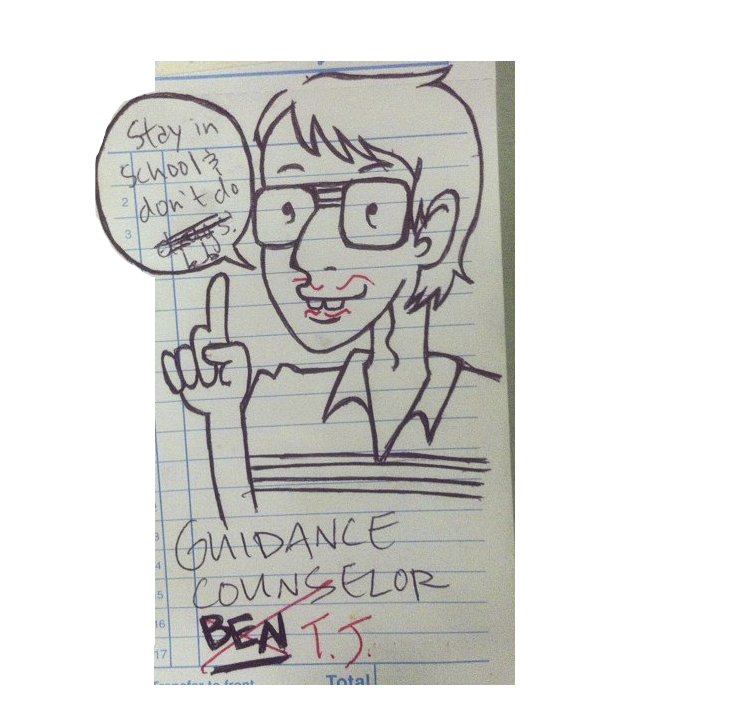 Stay in
School &
don't do
GUIDANCE
COUNSELOR
BEN T.J.
2
3
4
5
16
17
Transfer to front
Total